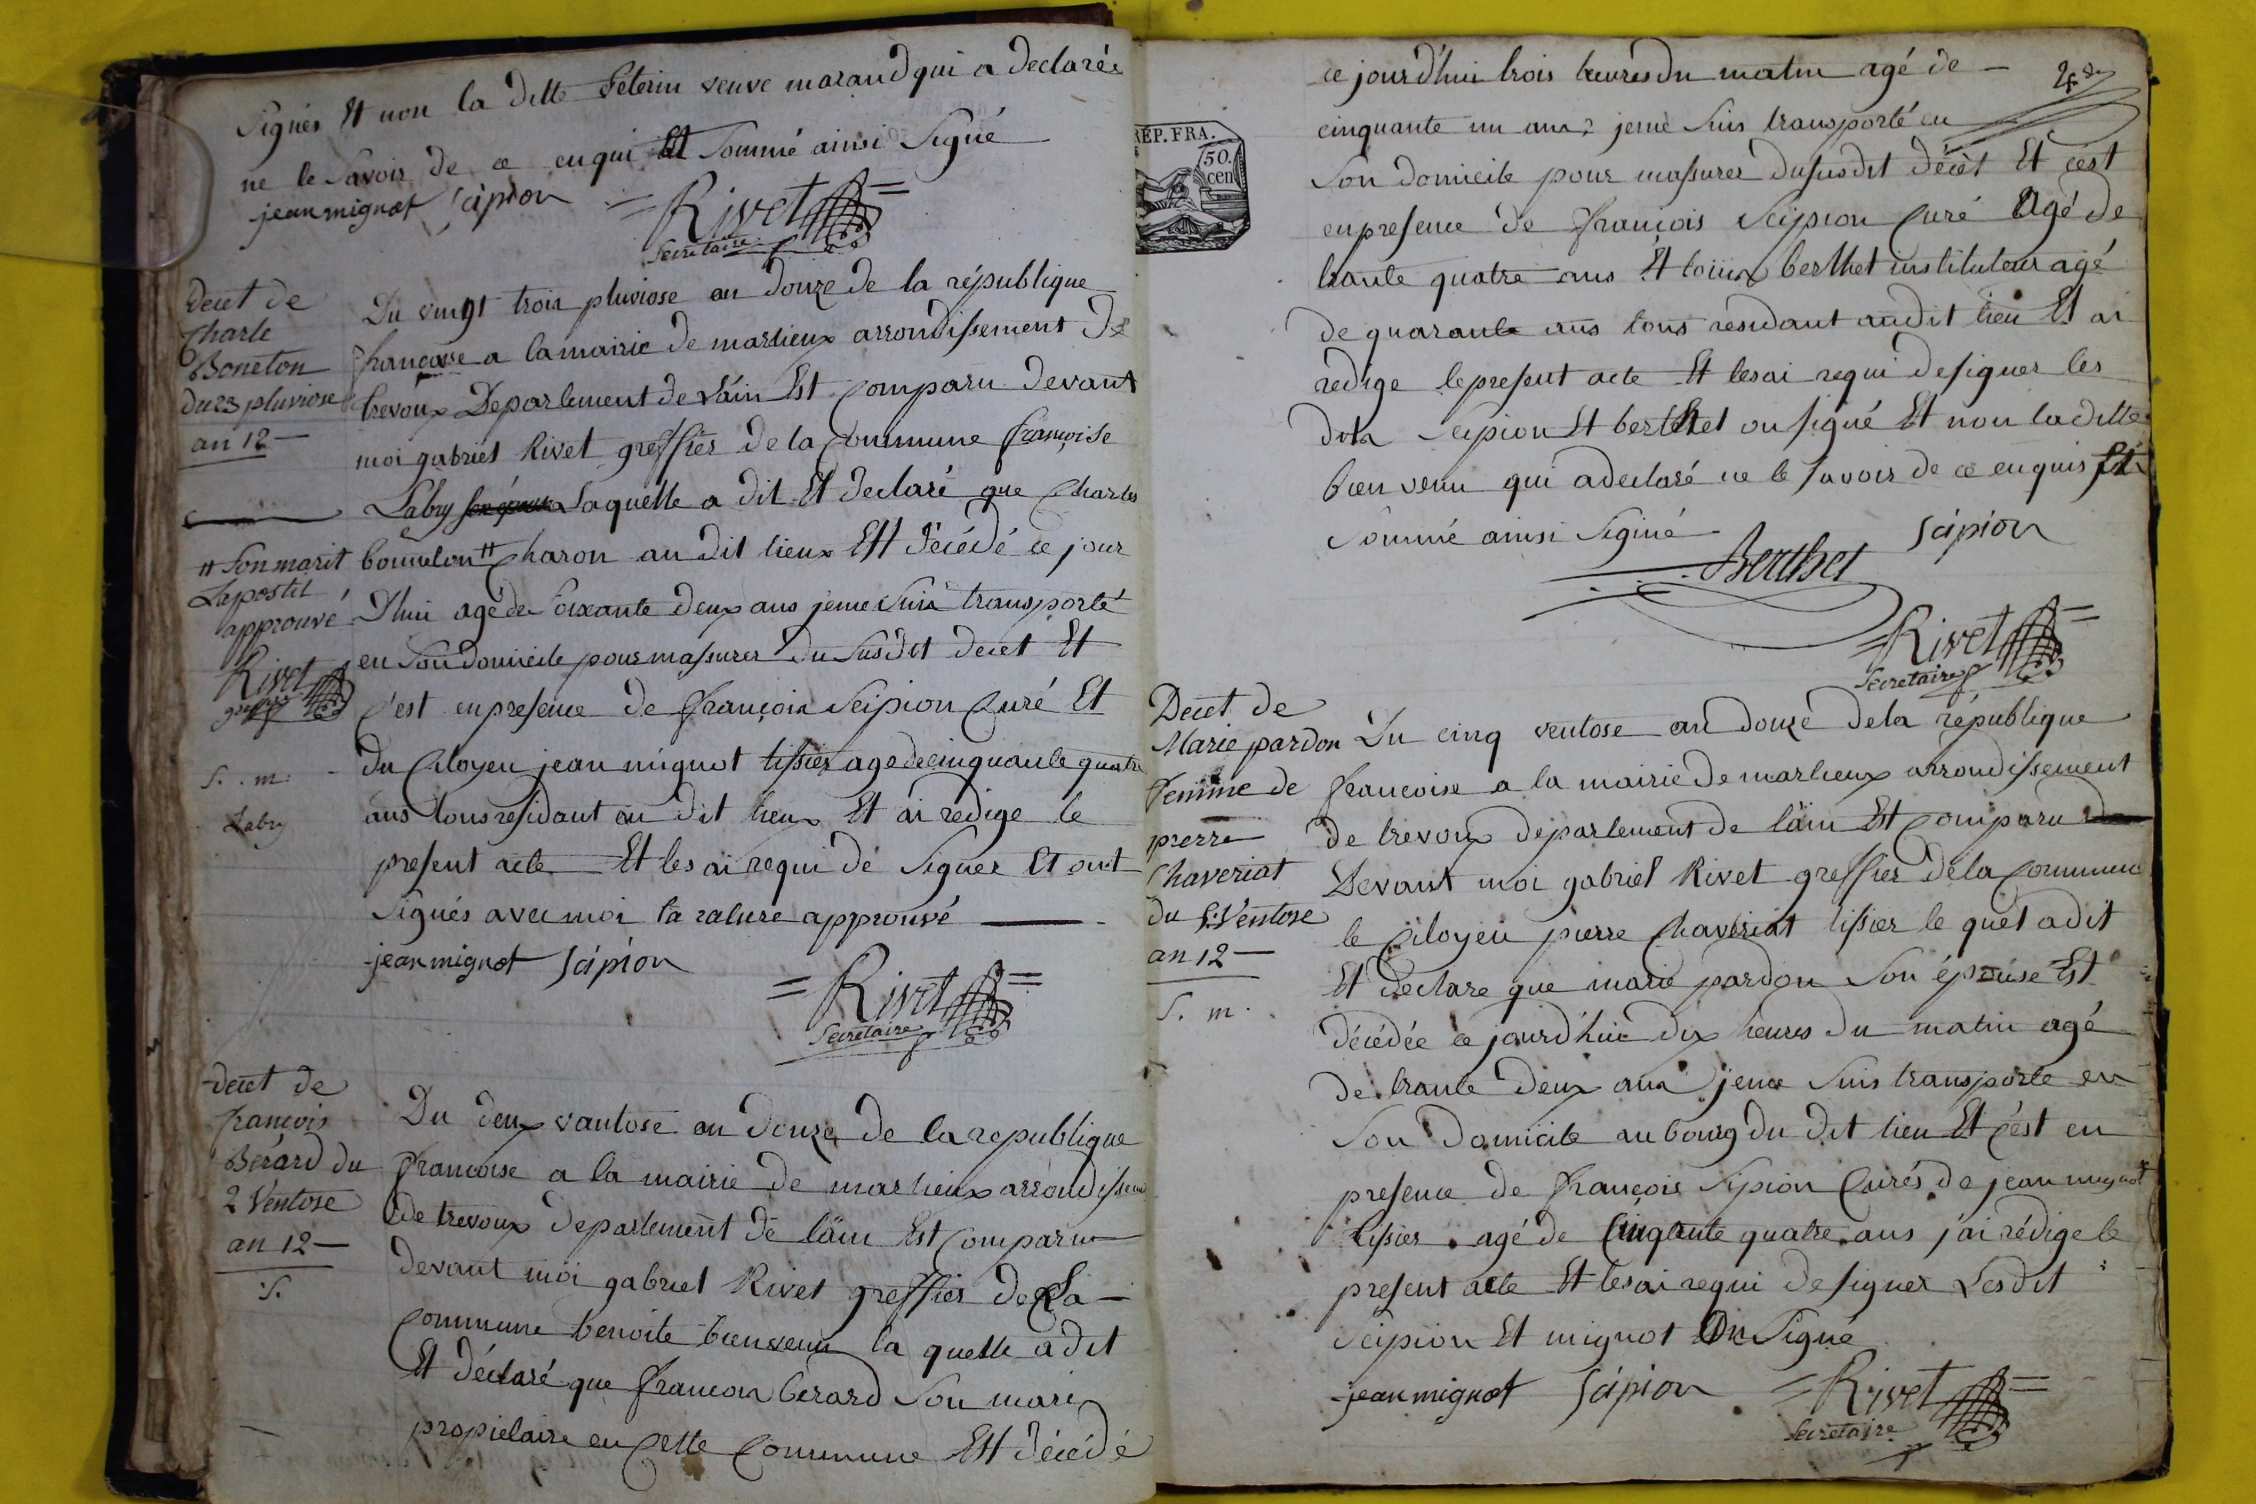 Signés Et non la ditte Pelerin veuve marand qui a declarée
ne le Savoir de ce enqui Et Sommé ainsi Signé
jean mignot Scipion Rivet
Secretaire
Decet de
Charle
Boneton
du 23 pluviose
an 12
Du vingt trois pluviose an douze de la république
francoise a la mairie de marlieux arrondissement de
trevoux Departement de L'ain Est Comparu devant
moi gabriel Rivet greffier de la Commune françoise
Labry laquelle a dit Et declaré que Charles
bonneton " Charon au dit lieux Est décédé ce jour
" Son marit
Lapostil
approuvé
Rivet
greffier
D'hui agé de Soixante deux ans jeme Suis transporté
en Son domicile pour massurer du Susdit decet Et
C'est en presence de françois Scipion Curé Et
du Citoyen jean mignot tissier age de cinquante quatre
ans tous residant au dit lieux Et ai redige le
present acte Et les ai requi de Signer Et ont
Signés avec moi la rature approuvé
S. m.
Labry
jean mignot Scipion
Rivet
Secretaire
decet de
francois
Bérard du
2 Ventose
an 12
S.
Du deux vantose an douze de la republique
francoise a la mairie de marlieux arrondissem
de trevoux departement de lain Est Comparu
devant moi gabriel Rivet greffier de La
Commune benoite bienvenu la quelle a dit
Et déclaré que francois bérard Son mari
propietaire en Cette Commune Est décédé
REP. FRA.
50.
cen
ce jourd'hui trois heures du matin agé de
cinquante un ans jeme Suis transporté en
Son domicile pour massurer dususdit décèt Et c'est
en presence de françois Scipion Curé Agé de
trante quatre ans Et louis berthet instituteur agé
de quarante ans tous residant audit lieu Et ai
redige le present acte Et les ai requi de signer les
dits Scipion Et berthet on signé Et non la ditte
bien venu qui a declaré ne le savoir de ce enquis Et
Sommé ainsi Signé
Scipion
Berthet
Rivet
Secretaire
Decet de
Marie pardon
femme de
pierre
Chaveriat
du 5 Ventose
an 12
S. m.
Du cinq ventose an douze dela république
francoise a la mairie de marlieux arrondissement
de trevoux departement de lain Est Comparu
Devant moi gabriel Rivet greffier dela Commune
le Citoyen pierre Chaveriat tissier le quel a dit
Et declare que marie pardon Son épouse Est
décédée ce jourd'hui dix heures du matin agé
de trante deux ans jeme Suis transporte en
Son Domicile au bourg du dit lieu Et c'est en
presence de françois Sipion Curés de jean mignot
tissier agé de Cinqante quatre ans j'ai rédige le
present acte Et les ai requi de signer Les dit
Scipion Et mignot On Signé
jean mignot Scipion Rivet
Secretaire